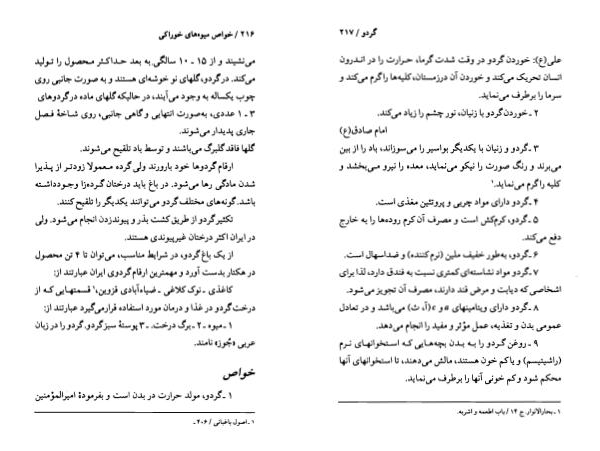 ۲۱۶ / خواص میوه‌های خوراکی
می‌نشیند و از ۱۵ ـ ۱۰ سالگی به بعد حداکثر محصول را تولید
می‌کند. در گردو، گلهای نو خوشه‌ای هستند و به صورت جانبی روی
چوب یکساله به وجود می‌آیند، در حالیکه گلهای ماده در گردوهای
۳ ـ ۱ عددی، به‌صورت انتهایی و گاهی جانبی، روی شاخهٔ فصل
جاری پدیدار می‌شوند.
گلها فاقد گلبرگ می‌باشند و توسط باد تلقیح می‌شوند.
ارقام گردوها خود بارورند ولی گرده معمولا زودتر از پذیرا
شدن مادگی رها می‌شود. در باغ باید درختان گرده‌زا وجود داشته
باشد. گونه‌های مختلف گردو می‌توانند یکدیگر را تلقیح کنند.
تکثیر گردو از طریق کشت بذر و پیوند زدن انجام می‌شود. ولی
در ایران اکثر درختان غیرپیوندی هستند.
از یک باغ گردو، در شرایط مناسب، می‌توان تا ۴ تن محصول
در هکتار بدست آورد و مهمترین ارقام گردوی ایران عبارتند از:
کاغذی ـ نوک کلاغی ـ ضیاءآبادی قزوین،۱ قسمتهایی که از
درخت گردو در غذا و درمان مورد استفاده قرار می‌گیرد عبارتند از:
۱ ـ میوه ـ ۲ ـ برگ درخت. ـ ۳ پوستهٔ سبز گردو. گردو را در زبان
عربی «جُوز» نامند.
خواص
۱ ـ گردو، مولد حرارت در بدن است و بفرمودهٔ امیرالمؤمنین
۱ ـ اصول باغبانی / ۲۰۶ ـ
گردو / ۲۱۷
علی(ع): خوردن گردو در وقت شدت گرما، حرارت را در اندرون
انسان تحریک می‌کند و خوردن آن در زمستان، کلیه‌ها را گرم می‌کند و
سرما را برطرف می‌نماید.
۲ ـ خوردن گردو با زنیان، نور چشم را زیاد می‌کند.
امام صادق(ع)
۳ ـ گردو و زنیان با یکدیگر بواسیر را می‌سوزاند، باد را از بین
می‌برند و رنگ صورت را نیکو می‌نماید، معده را نیرو می‌بخشد و
کلیه را گرم می‌نماید.۱
۴ ـ گردو دارای مواد چربی و پروتئین مغذی است.
۵ ـ گردو، کرم‌کش است و مصرف آن کرم روده‌ها را به خارج
دفع می‌کند.
۶ ـ گردو، به‌طور خفیف ملین (نرم‌کننده) و ضداسهال است.
۷ ـ گردو مواد نشاسته‌ای کمتری نسبت به فندق دارد، لذا برای
اشخاصی که دیابت و مرض قند دارند، مصرف آن تجویز می‌شود.
۸ ـ گردو دارای ویتامینهای (آ، ث) می‌باشد و در تعادل
عمومی بدن و تغذیه، عمل مؤثر و مفید را انجام می‌دهد.
۹ ـ روغن گردو را به بدن بچه‌هایی که استخوانهای نرم
(راشیتیسم) و یا کم خون هستند، مالش می‌دهند، تا استخوانهای آنها
محکم شود و کم خونی آنها را برطرف می‌نماید.
۱ ـ بحارالانوار، ج ۱۴ / باب اطعمه و اشربه.